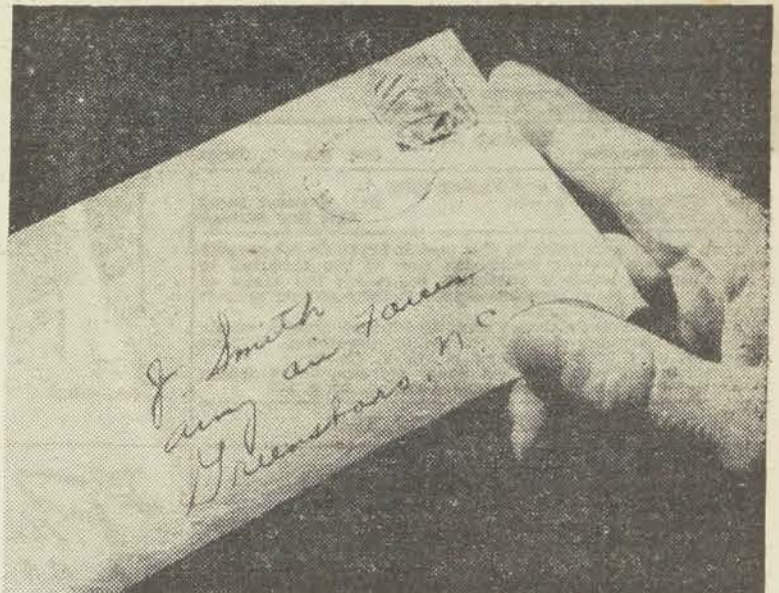 J. Smith
army air Forces
Greensboro, N.C.